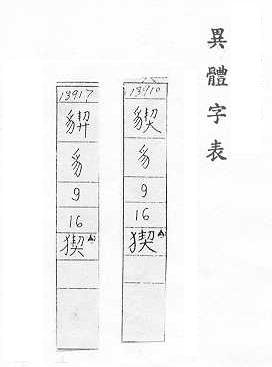 異體字表
13910
䝟
豸
9
16
猰
13917
豸
9
16
猰